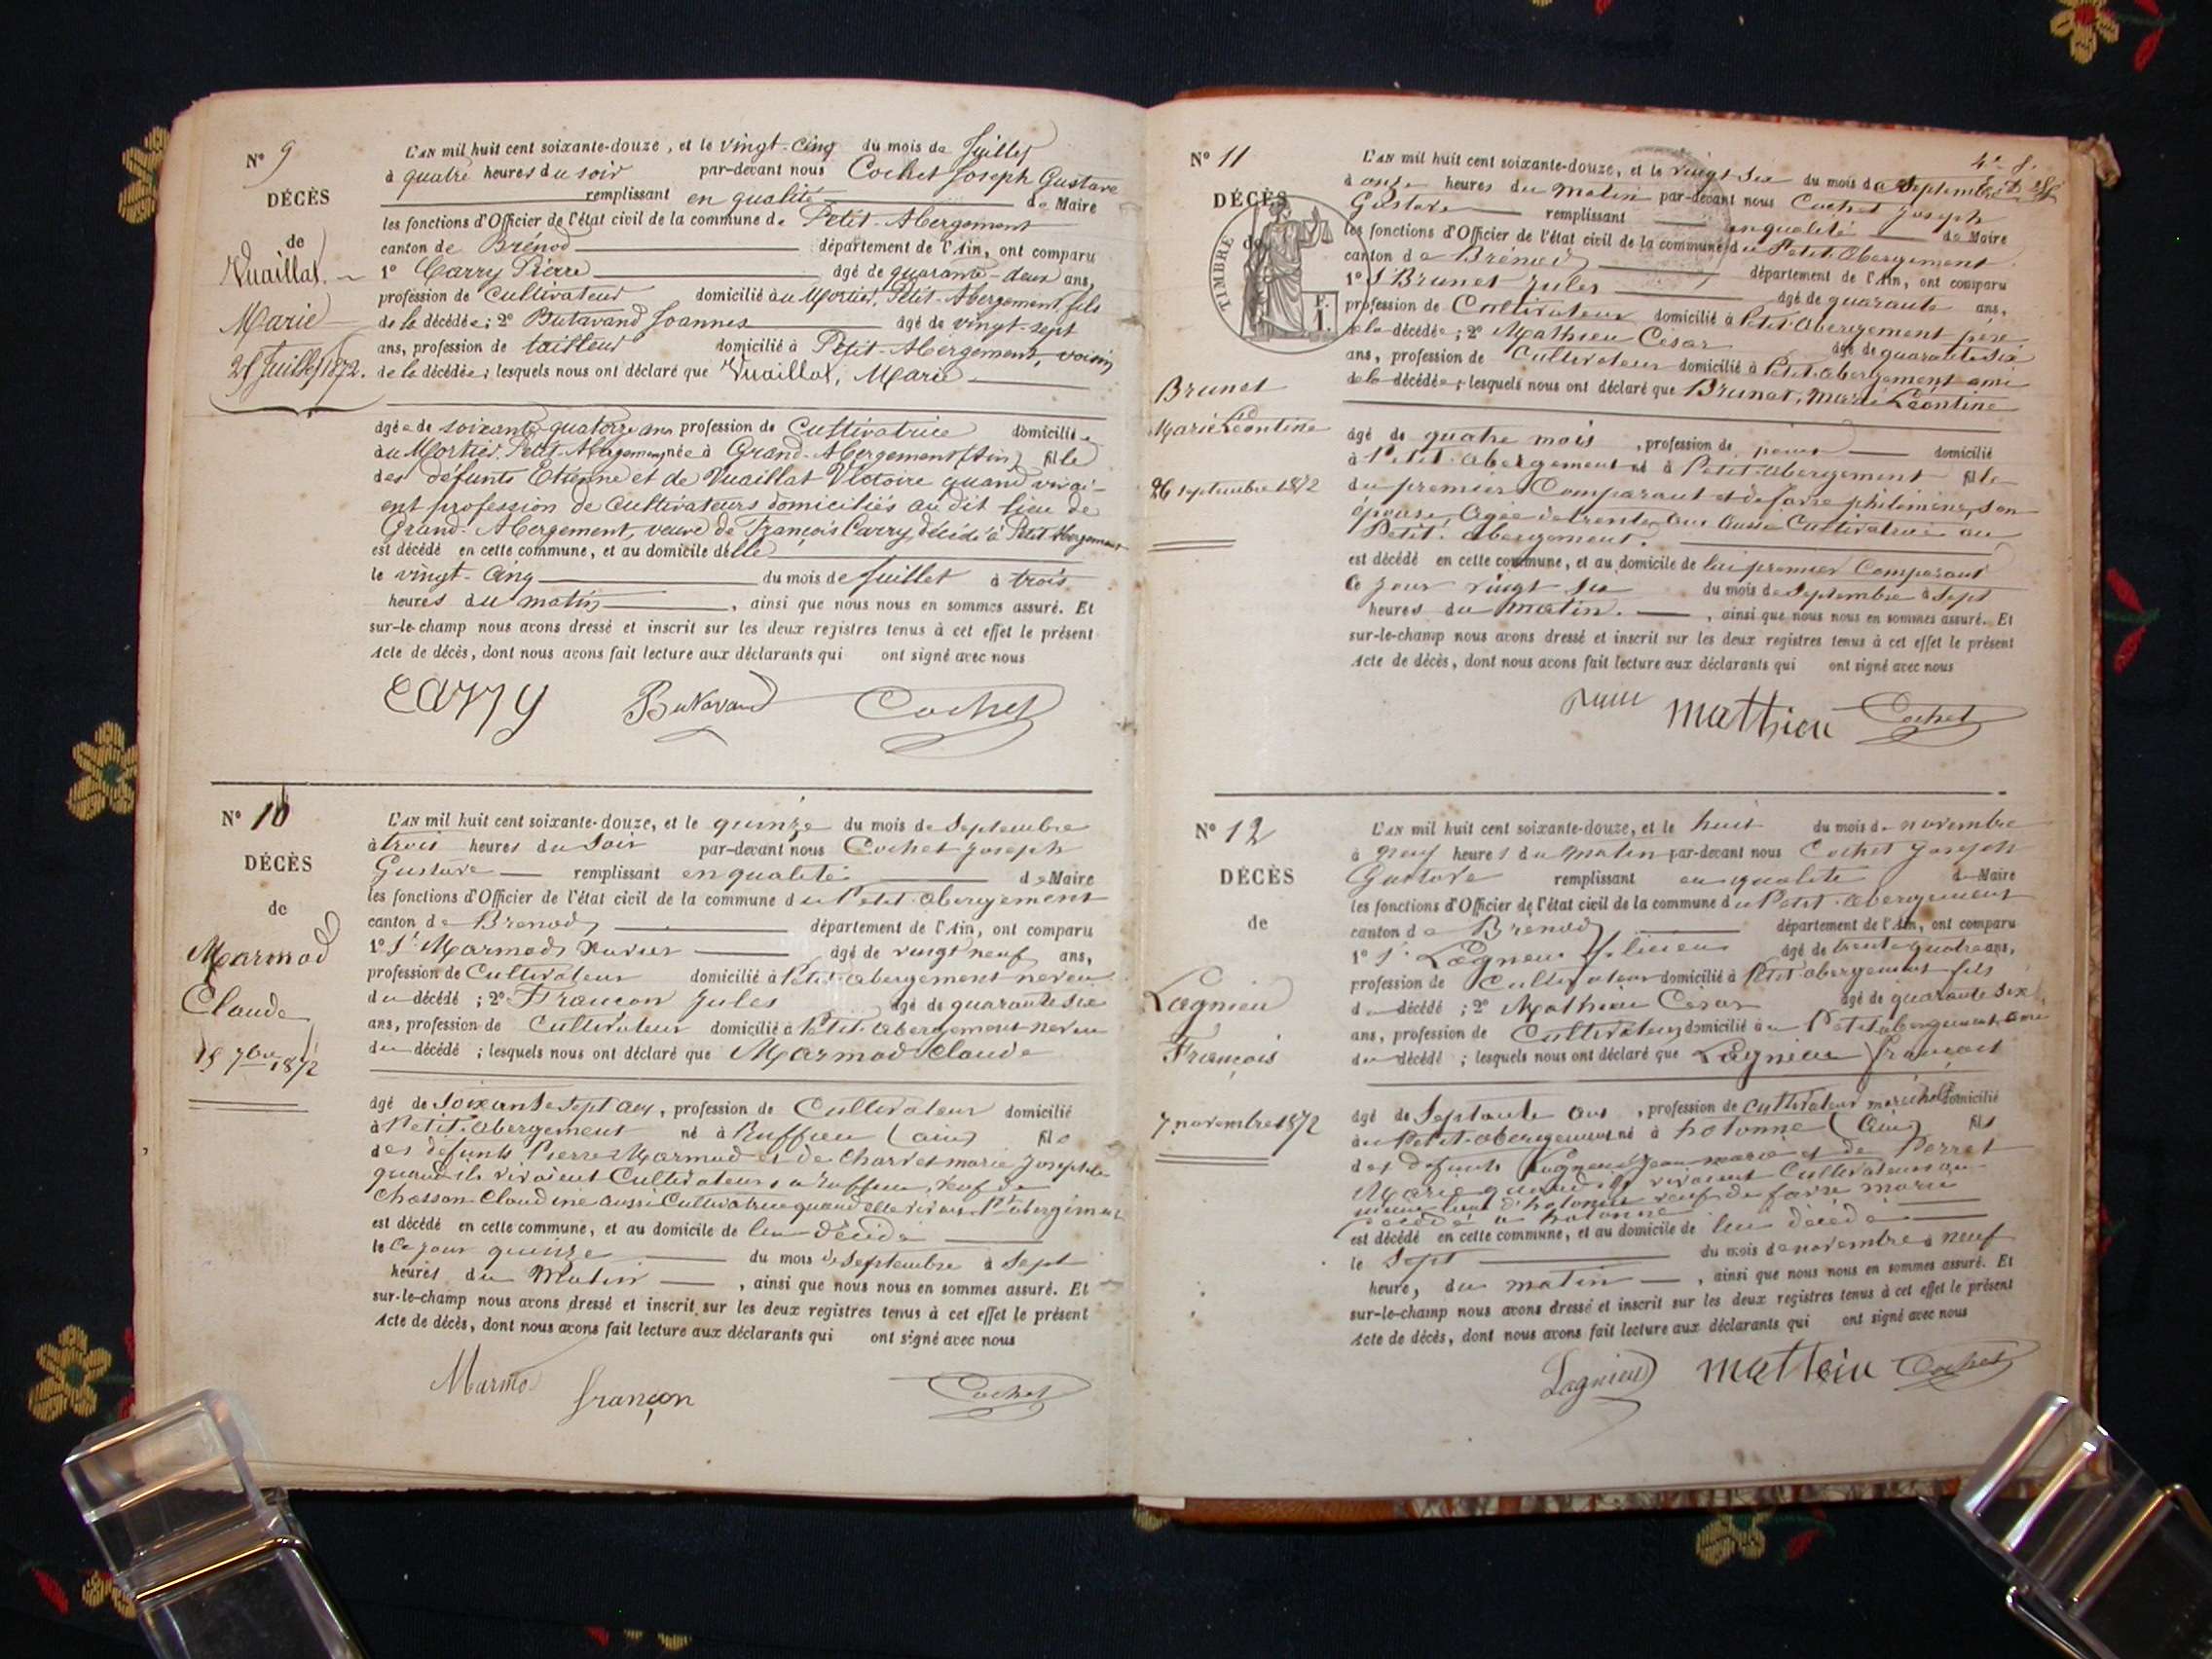 N° 9
DÉCÈS
de
Vuaillat
Marie
25 Juillet 1872.
L'AN mil huit cent soixante-douze, et le vingt-cinq du mois de Juillet
à quatre heures du soir par-devant nous Cochet Joseph Gustave
remplissant en qualité de Maire
les fonctions d'Officier de l'état civil de la commune de Petit-Abergement
canton de Brénod département de l'Ain, ont comparu
1° Carry Pierre âgé de quarante-deux ans,
profession de cultivateur domicilié au Mortier, Petit-Abergement, fils
de la décédée; 2° Butavand Joannes âgé de vingt-sept
ans, profession de tailleur domicilié à Petit-Abergement, voisin
de la décédée; lesquels nous ont déclaré que Vuaillat, Marie
âgée de soixante quatorze ans profession de Cultivatrice domiciliée
au Mortier, Petit-Abergement, née à Grand-Abergement (Ain) fille
des défunts Etienne et de Vuaillat Victoire quand vivai-
ent profession de cultivateurs domiciliés au dit lieu de
Grand-Abergement, veuve de François Carry, décédé à Petit Abergement
est décédé en cette commune, et au domicile d'elle
le vingt-cinq du mois de Juillet à trois
heures du matin, ainsi que nous nous en sommes assuré. Et
sur-le-champ nous avons dressé et inscrit sur les deux registres tenus à cet effet le présent
Acte de décès, dont nous avons fait lecture aux déclarants qui ont signé avec nous
Carry Butavand Cochet
N° 10
DÉCÈS
de
Marmod
Claude
15 7bre 1872
L'AN mil huit cent soixante-douze, et le quinze du mois de Septembre
à trois heures du Soir par-devant nous Cochet Joseph
Gustave remplissant en qualité de Maire
les fonctions d'Officier de l'état civil de la commune du Petit-abergement
canton de Brenod département de l'Ain, ont comparu
1° Sr Marmod Xavier âgé de vingt neuf ans,
profession de Cultivateur domicilié à Petit abergement neveu
du décédé; 2° Françon Jules âgé de quarante six
ans, profession de Cultivateur domicilié à Petit-abergement neveu
du décédé; lesquels nous ont déclaré que Marmod Claude
âgé de Soixante Sept ans, profession de Cultivateur domicilié
à Petit-abergement né à Ruffieu (ain) fils
des défunts Pierre Marmod et de Charvet marie Josephte
quand ils vivaient Cultivateurs à Ruffieu, veuf de
Chosson Claudine aussi Cultivatrice quand elle vivait Pt abergement
est décédé en cette commune, et au domicile de lui décédé
le Ce jour quinze du mois de Septembre à Sept
heures du Matin, ainsi que nous nous en sommes assuré. Et
sur-le-champ nous avons dressé et inscrit sur les deux registres tenus à cet effet le présent
Acte de décès, dont nous avons fait lecture aux déclarants qui ont signé avec nous
Marmod françon Cochet
N° 11
DÉCÈS
de
TIMBRE
Brunet
Marie Léontine
26 septembre 1872
L'AN mil huit cent soixante-douze, et le vingt six du mois de Septembre
à onze heures du matin par-devant nous Cochet Joseph
Gustave remplissant en qualité de Maire
les fonctions d'Officier de l'état civil de la commune du Petit-abergement
canton de Brénod département de l'Ain, ont comparu
1° Sr Brunet Jules âgé de quarante ans,
profession de Cultivateur domicilié à Petit-abergement père
de la décédée; 2° Mathieu César âgé de quarante six
ans, profession de Cultivateur domicilié à Petit-abergement ami
de la décédée; lesquels nous ont déclaré que Brunet, Marie Léontine
âgé de quatre mois, profession de domicilié
à Petit-abergement né à Petit-abergement fille
du premier Comparant et de favre philomène, son
épouse, âgée de trente ans aussi Cultivatrice au
Petit-abergement.
est décédé en cette commune, et au domicile de lui premier Comparant
Ce jour vingt six du mois de Septembre à Sept
heures du matin, ainsi que nous nous en sommes assuré. Et
sur-le-champ nous avons dressé et inscrit sur les deux registres tenus à cet effet le présent
Acte de décès, dont nous avons fait lecture aux déclarants qui ont signé avec nous
mathieu Cochet
N° 12
DÉCÈS
de
Lagnieu
François
7 novembre 1872
L'AN mil huit cent soixante-douze, et le huit du mois de novembre
à neuf heures du matin par-devant nous Cochet Joseph
Gustave remplissant en qualité de Maire
les fonctions d'Officier de l'état civil de la commune du Petit-abergement
canton de Brenod département de l'Ain, ont comparu
1° Sr Lagnieu âgé de trente quatre ans,
profession de Cultivateur domicilié à Petit-abergement fils
du décédé; 2° Mathieu César âgé de quarante six
ans, profession de Cultivateur, domicilié au Petit abergement, ami
du décédé; lesquels nous ont déclaré que Lagnieu françois
âgé de Septante ans, profession de Cultivateur maréchal domicilié
au Petit-abergement né à hotonne (Ain) fils
des défunts Lagnieu Jean marie et de Perret
Marie quand ils vivaient Cultivateurs au
même lieu d'hotonne veuf de favre marie
décédé à hotonne
est décédé en cette commune, et au domicile de lui décédé
le Sept du mois de novembre à neuf
heure, du matin, ainsi que nous nous en sommes assuré. Et
sur-le-champ nous avons dressé et inscrit sur les deux registres tenus à cet effet le présent
Acte de décès, dont nous avons fait lecture aux déclarants qui ont signé avec nous
Lagnieu mathieu Cochet